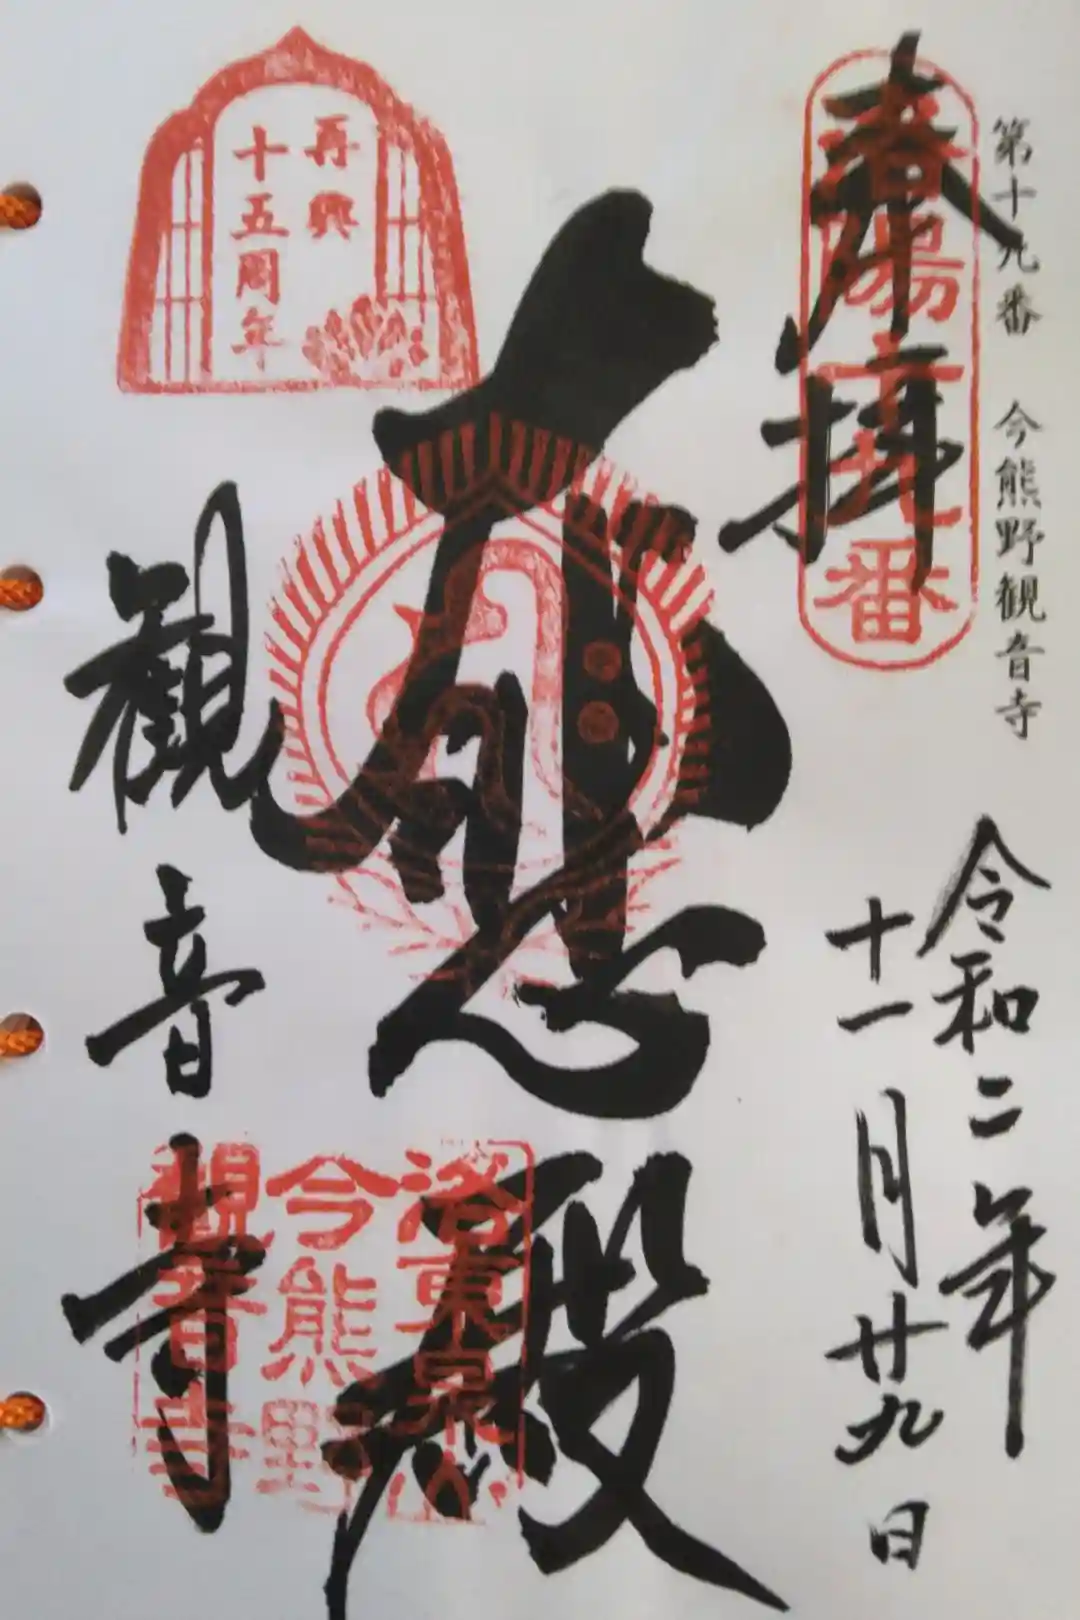 第十九番 今熊野観音寺
奉拝
洛陽十九番
令和二年
十一月廿九日
大悲殿
再興
十五周年
観音寺
洛東泉山
今熊野
観音寺